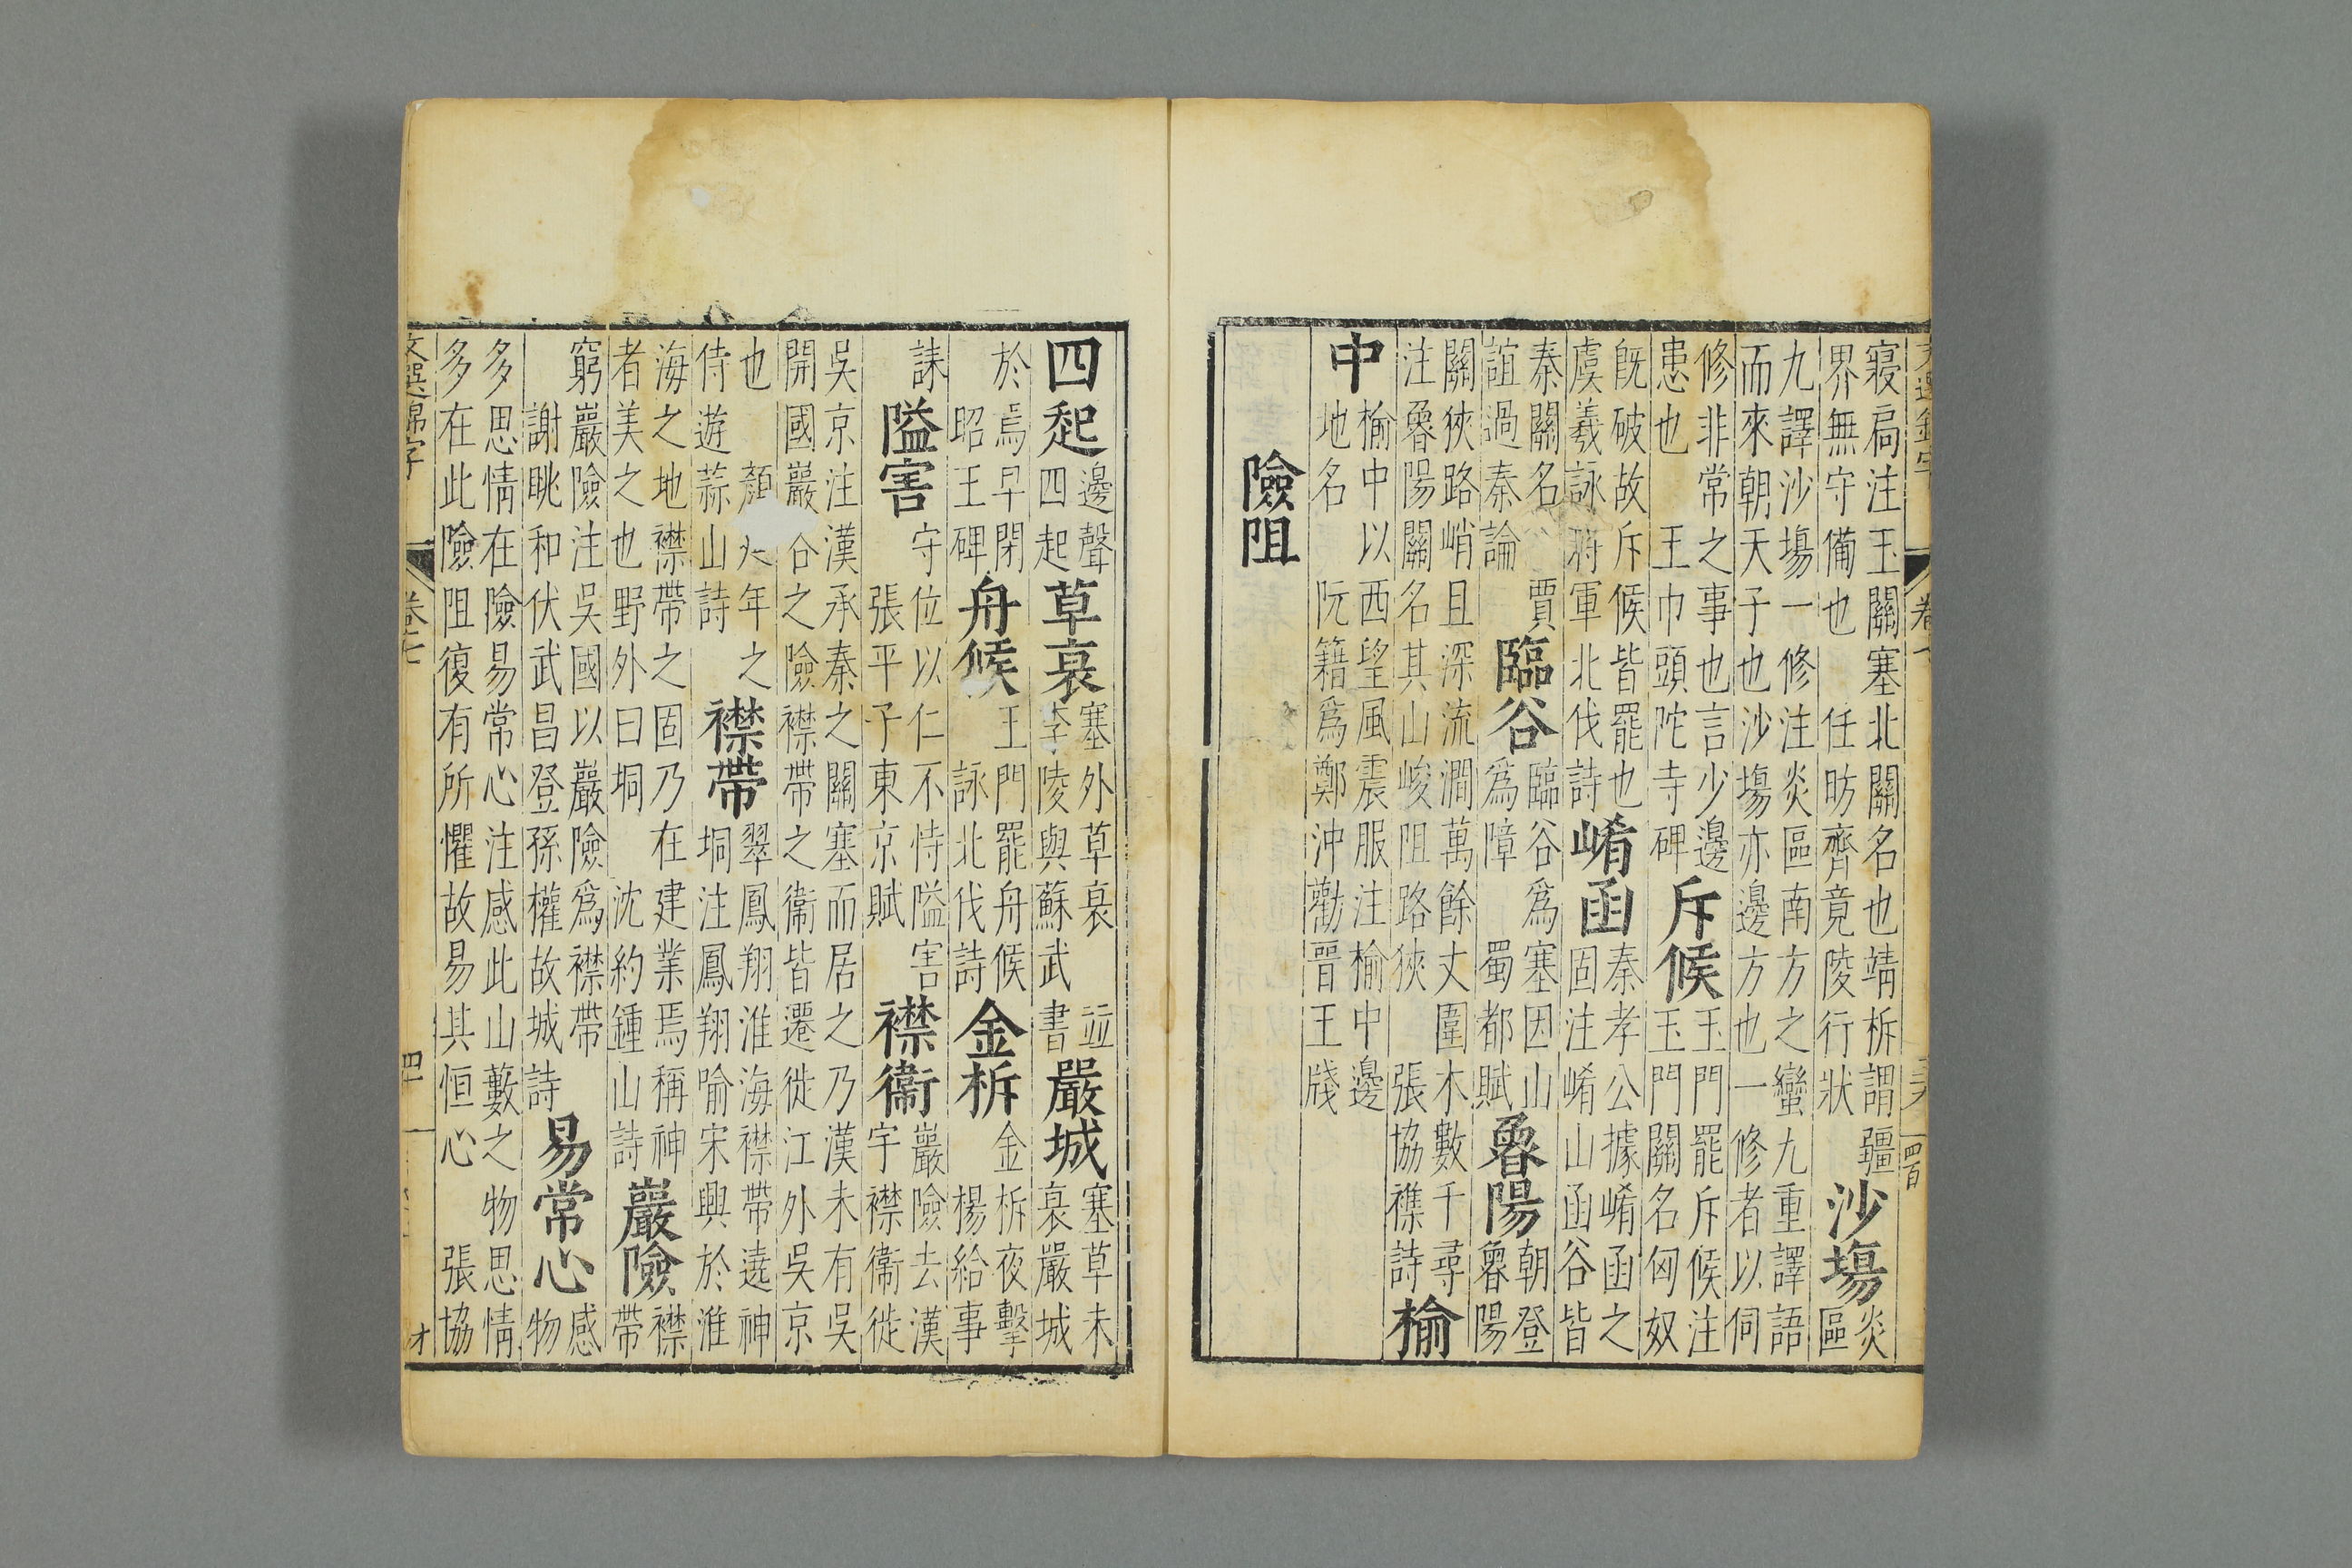 寢扃注玉關塞北關名也靖柝謂疆界無守備也 任昉齊竟陵行狀 沙塲 炎區
九譯沙塲一修注炎區南方之蠻九重譯語而來朝天子也沙塲亦邊方也一修者以伺
修非常之事也言少邊患也 王巾頭陀寺碑 斥候 玉門罷斥候注玉門關名匈奴
旣破故斥候皆罷也虞羲詠將軍北伐詩 崤函 秦孝公據崤函之固注崤山函谷皆
秦關名 賈誼過秦論 臨谷 臨谷爲塞因山爲障 蜀都賦 魯陽 朝登魯陽
關狹路峭且深流澗萬餘丈圍木數千尋注魯陽關名其山峻阻路狹 張協襍詩 榆
中 榆中以西望風震服注榆中邊地名 阮籍爲鄭沖勸晉王牋
險阻
四起 邊聲四起 草衰 塞外草衰 並李陵與蘇武書 嚴城 塞草未衰嚴城
於焉早閉昭王碑 舟候 王門罷舟候詠北伐詩 金柝 金柝夜擊 楊給事
誄 隘害 守位以仁不恃隘害 張平子東京賦 襟衞 巖險去漢宇襟衞徙
吳京注漢承秦之關塞而居之乃漢未有吳開國巖谷之險襟帶之衞皆遷徙江外吳京
也 顏延年之侍遊蒜山詩 襟帶 翠鳳翔淮海襟帶遶神坰注鳳翔喻宋興於淮
海之地襟帶之固乃在建業焉稱神者美之也野外曰坰 沈約鍾山詩 巖險 襟帶
窮巖險注吳國以巖險爲襟帶 謝眺和伏武昌登孫權故城詩 易常心 感物
多思情在險易常心注感此山藪之物思情多在此險阻復有所懼故易其恒心 張協
文選錦字 卷七 四十